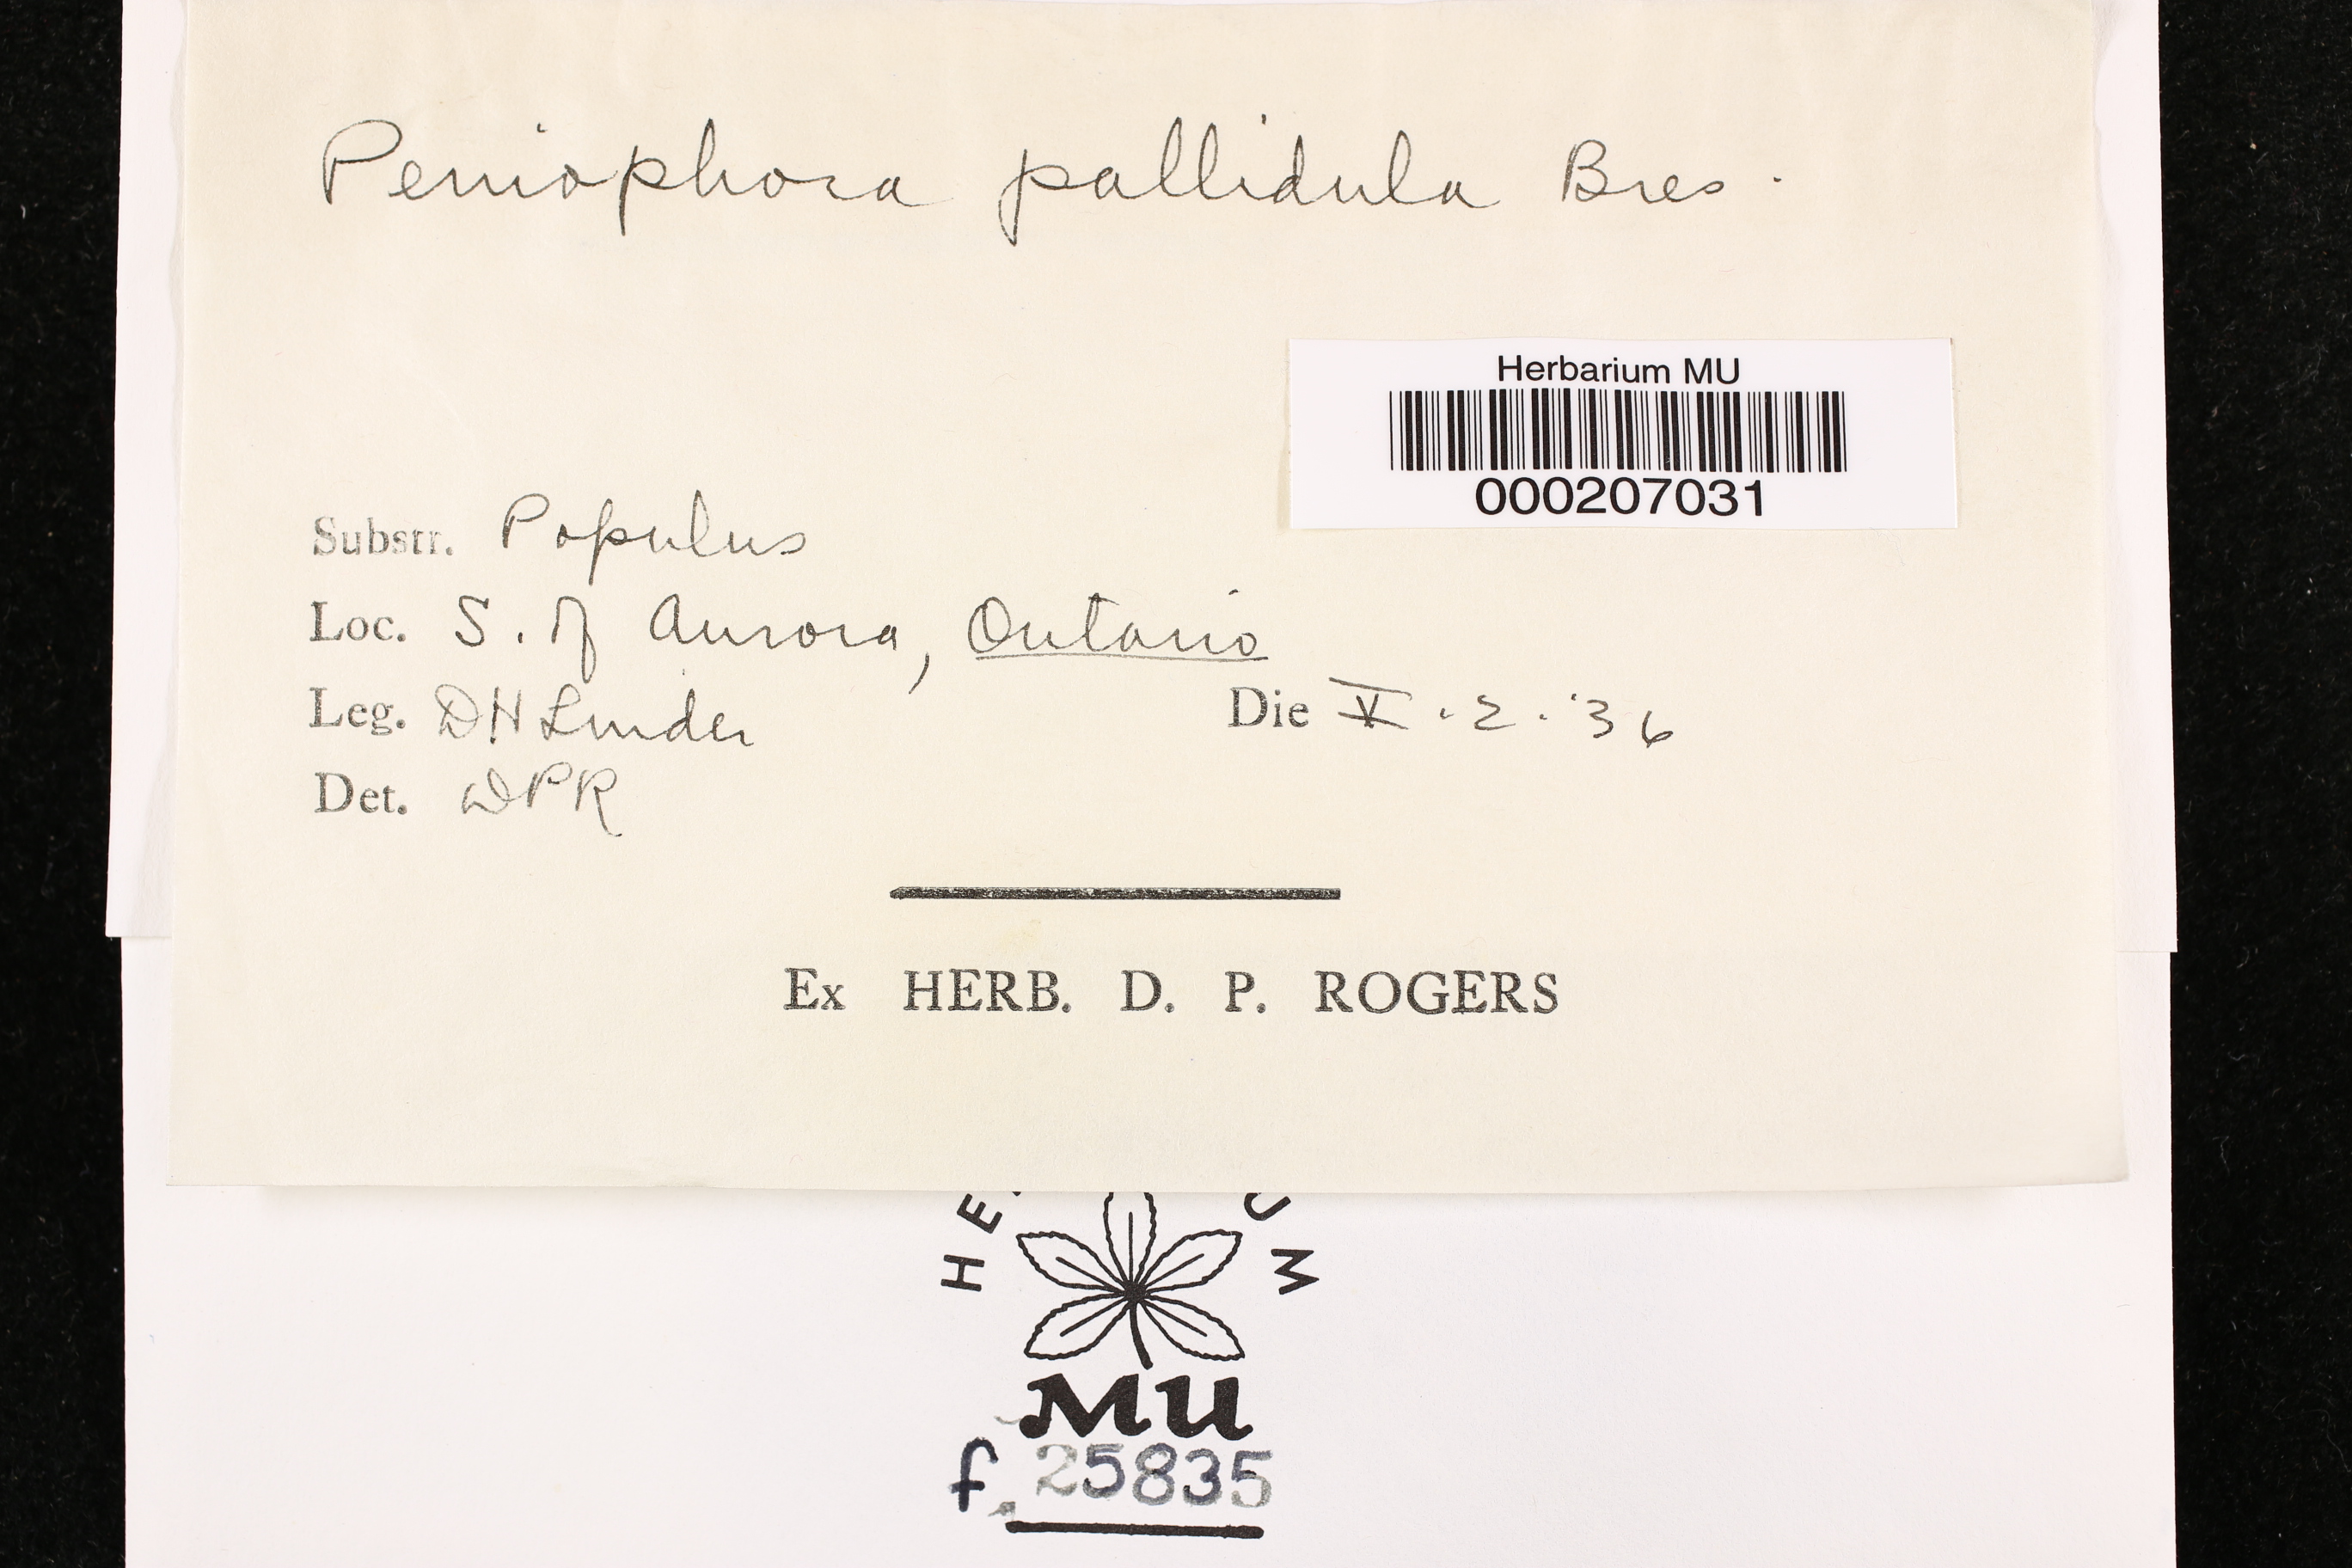 Peniophora pallidula Bres.
Herbarium MU
000207031
Substr. Populus
Loc. S. of Aurora, Ontario
Leg. DH Linder Die V. 2. '36
Det. DPR
Ex HERB. D. P. ROGERS
HE UM
MU
f. 25835